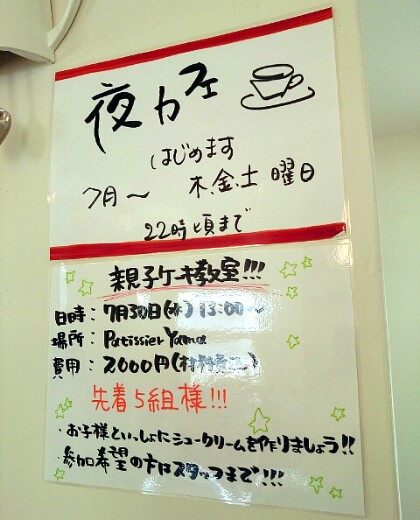 夜カフェ
はじめます
7月～ 木、金、土 曜日
22時頃まで
親子ケーキ教室!!!
日時：7月30日(水) 13:00～
場所：Patissier Yama
費用：2000円(材料費込)
先着5組様!!!
・お子様といっしょにシュークリームを作りましょう!!
・参加希望の方はスタッフまで!!!